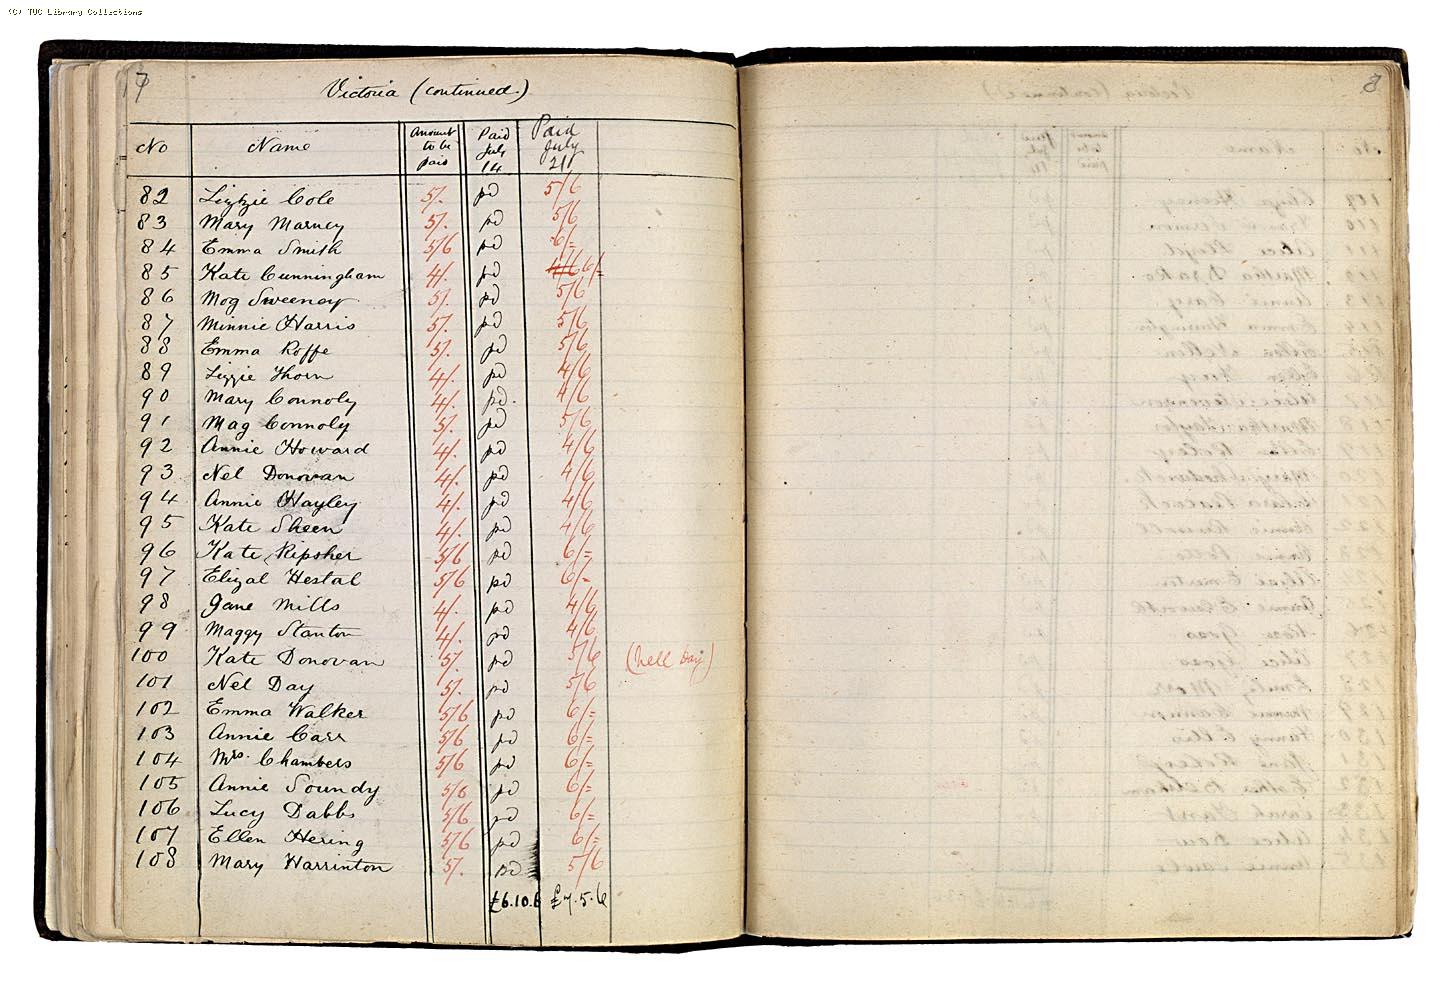 (C) TUC Library Collections
7
Victoria (continued.)
No Name Amount to be paid Paid July 14 Paid July 21st
82 Lizzie Cole 5/. pd 5/6
83 Mary Marney 5/. pd 5/6
84 Emma Smith 5/6 pd 6/=
85 Kate Cunningham 4/. pd 4/6 6/=
86 Mog Sweeney 5/. pd 5/6
87 Minnie Harris 5/. pd 5/6
88 Emma Roffe 5/. pd 5/6
89 Lizzie Thorn 4/. pd 4/6
90 Mary Connoly 4/. pd. 4/6
91 Mag Connoly 5/. pd 5/6
92 Annie Howard 4/. pd 4/6
93 Nel Donovan 4/. pd 4/6
94 Annie Hayley 4/. pd 4/6
95 Kate Sheen 4/. pd 4/6
96 Kate Ripsher 5/6 pd 6/=
97 Elizal Hestal 5/6 pd 6/-
98 Jane Mills 4/. pd 4/6
99 Maggy Stanton 4/. pd 4/6
100 Kate Donovan 5/. pd 5/6 (Nell Day)
101 Nel Day 5/. pd 5/6
102 Emma Walker 5/6 pd 6/=
103 Annie Carr 5/6 pd 6/=
104 Mrs. Chambers 5/6 pd 6/=
105 Annie Soundy 5/6 pd 6/=
106 Lucy Dabbs 5/6 pd 6/=
107 Ellen Hering 5/6 pd 6/=
108 Mary Harrinton 5/. pd 5/6
£6.10.6 £7.5.6
8